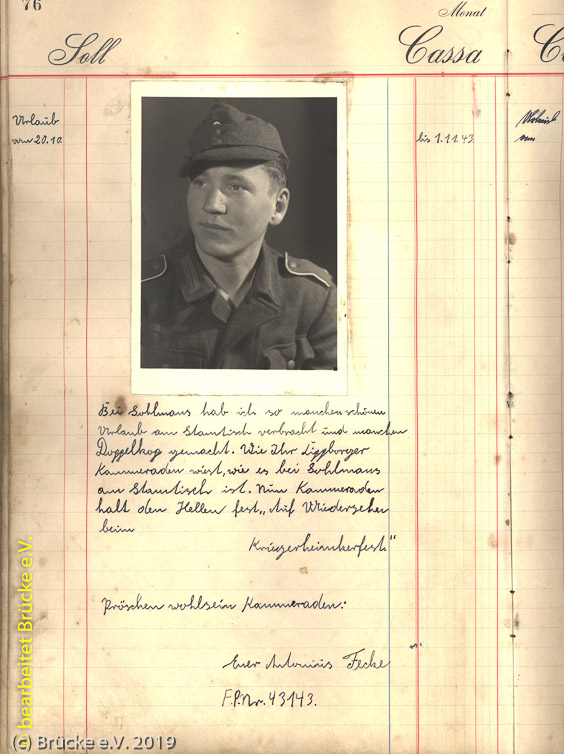 76
Soll
Monat
Cassa
Urlaub
vom 20.10.
bis 1.11.43.
Bei Sohlmans hab ich so manchen schönen
Urlaub am Stamtisch verbracht und manchen
Doppelkop gemacht. Wie Ihr Lippborger
Kammeraden wiest, wie es bei Sohlmans
am Stamtisch ist. Nun Kammeraden
halt den Hellen fest „Auf Wiedersehen
beim
Kriegerheimkerfest."
Pröschen wohlsein Kammeraden:
Euer Antonius Fecke
F.P.Nr. 43143.
© bearbeitet Brücke e.V.
(c) Brücke e.V. 2019